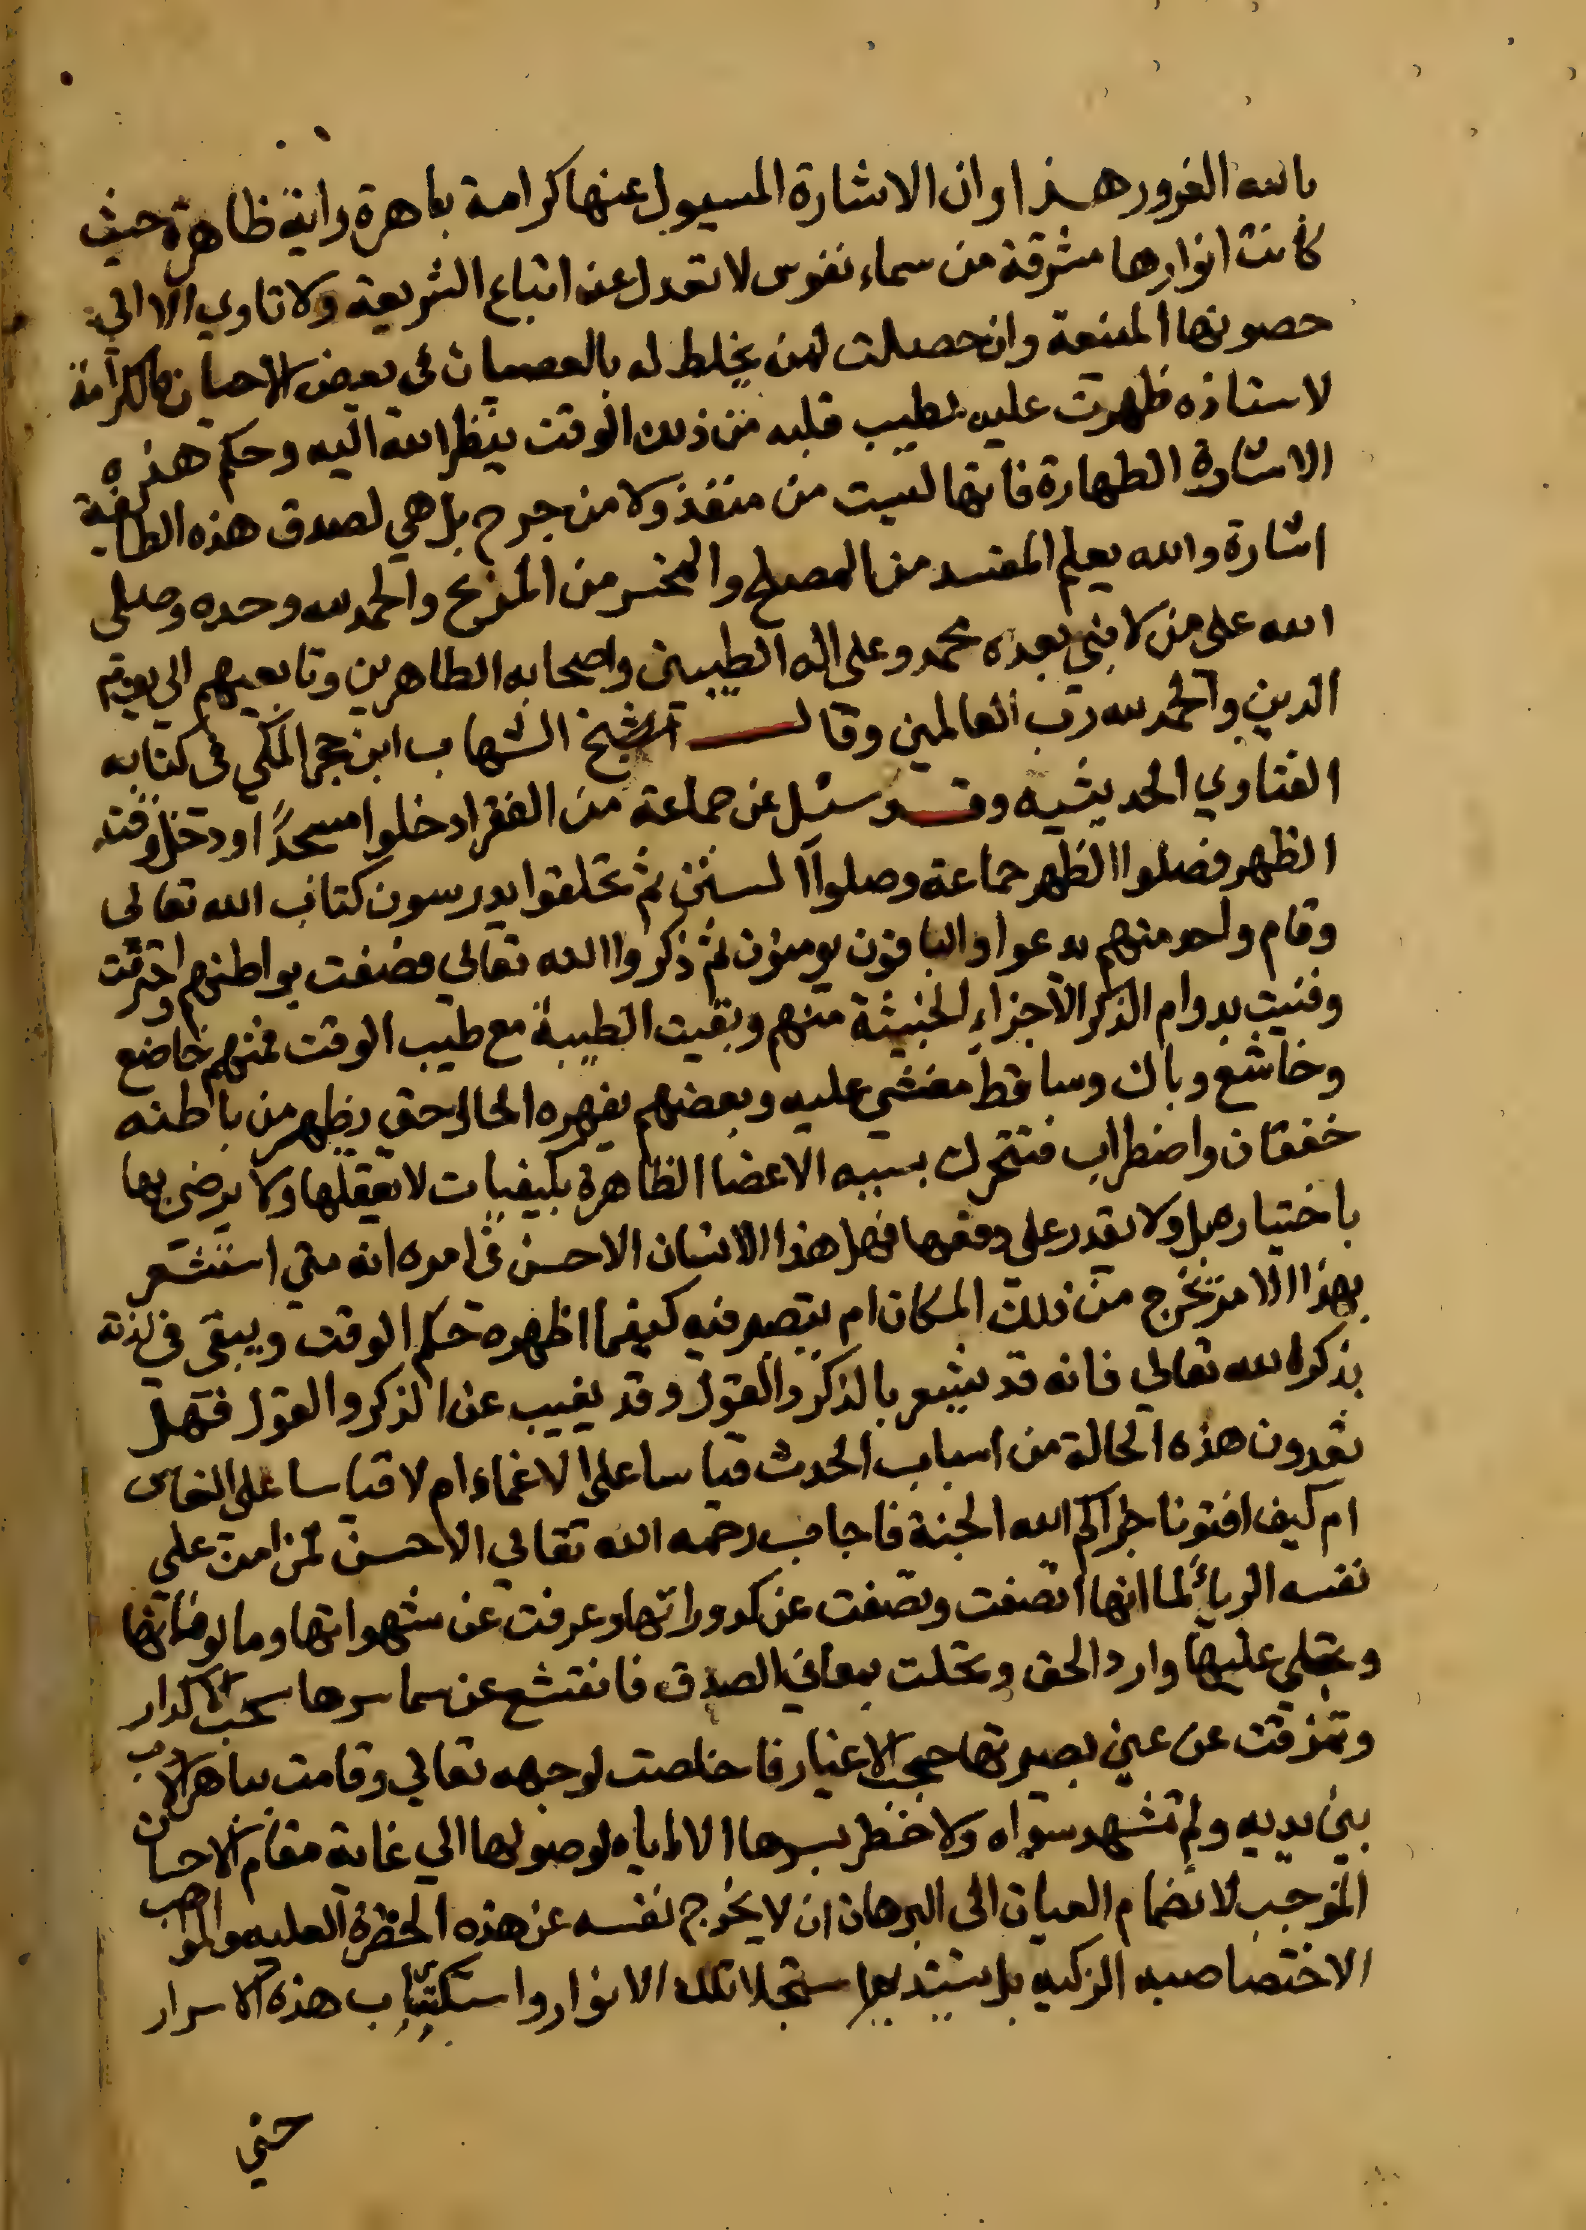 بالله الغرور هذا وان الاشارة المسيول عنها كرامة باهرة واية ظاهرة حيث
كانت انوارها مشرقة من سماء نفوس لا تعدل عن اتباع الشريعة ولا تاوي الا الي
حصونها المنيعة وان حصلت لمن يخلط له بالعصيان في بعض الاحيان فالكرامة
لاستاذه ظهرت عليه لطيب قلبه من ذلك الوقت بنظر الله اليه وحكم هذه
الاشارة الطهارة فانها ليست من منفذ ولا من جرح بل هي لصدق هذه الطايفة
اشارة والله يعلم المفسد من المصلح والمخسر من المربح والحمد لله وحده وصلى
الله على من لا نبي بعده محمد وعلى اله الطيبين واصحابه الطاهرين وتابعيهم الي يوم
الدين والحمد لله رب العالمين وقال الشيخ الشهاب ابن حجر المكي في كتابه
الفتاوي الحديثيه وقد سئل عن جماعة من الفقرا دخلوا مسجدًا ودخل وقت
الظهر فصلوا الظهر جماعة وصلوا السنن ثم تحلقوا يدرسون كتاب الله تعالى
وقام واحد منهم يدعوا والباقون يومنون ثم ذكروا الله تعالي فصفت بواطنهم واحترقت
وفنيت بدوام الذكر الاجزاء الخبيثة منهم وبقيت الطيبة مع طيب الوقت فمنهم خاضع
وخاشع وباك وساقط مغشي عليه وبعضهم يقهره الحال حتى يظهر من باطنه
خفقان واضطراب فتتحرك بسببه الاعضا الظاهرة بكيفيات لا يعقلها ولا يرضى بها
باختياره بل ولا يقدر على دفعها فهل هذا الانسان الاحسن في امره انه متي استشعر
بهذا الامر يخرج من ذلك المكان ام يتصبر فيه كيفما اظهره حكم الوقت ويبقى في لذته
بذكر الله تعالي فانه قد يشعر بالذكر والقول وقد يغيب عن الذكر والقول فهل
تعدون هذه الحالة من اسباب الحدث قياسا على الاغماء ام لا قياسا على النعاس
ام كيف افتونا جزاكم الله الجنة فاجاب رحمه الله تعالي الاحسن لمن امن على
نفسه الرياء لما انها اتصفت وتصفت عن كدوراتها وعرفت عن شهواتها ومالوفاتها
وتجلي عليها وارد الحق وتحلت بمعاني الصدق فانقشع عن سما سرها سحب الاكدار
وتمزقت عن عين بصيرتها حجب الاغيار فاخلصت لوجهه تعالي وقامت بباهر الادب
بين يديه ولم تشهد سواه ولا خطر بسرها الا اياه لوصولها الي غاية مقام الاحسان
الموجب لانضمام العيان الى البرهان ان لا يخرج نفسه عن هذه الحضرة العليه والمواهب
الاختصاصيه الزكيه بل يستديم استجلا تلك الانوار واستكتاب هذه الاسرار
حتي